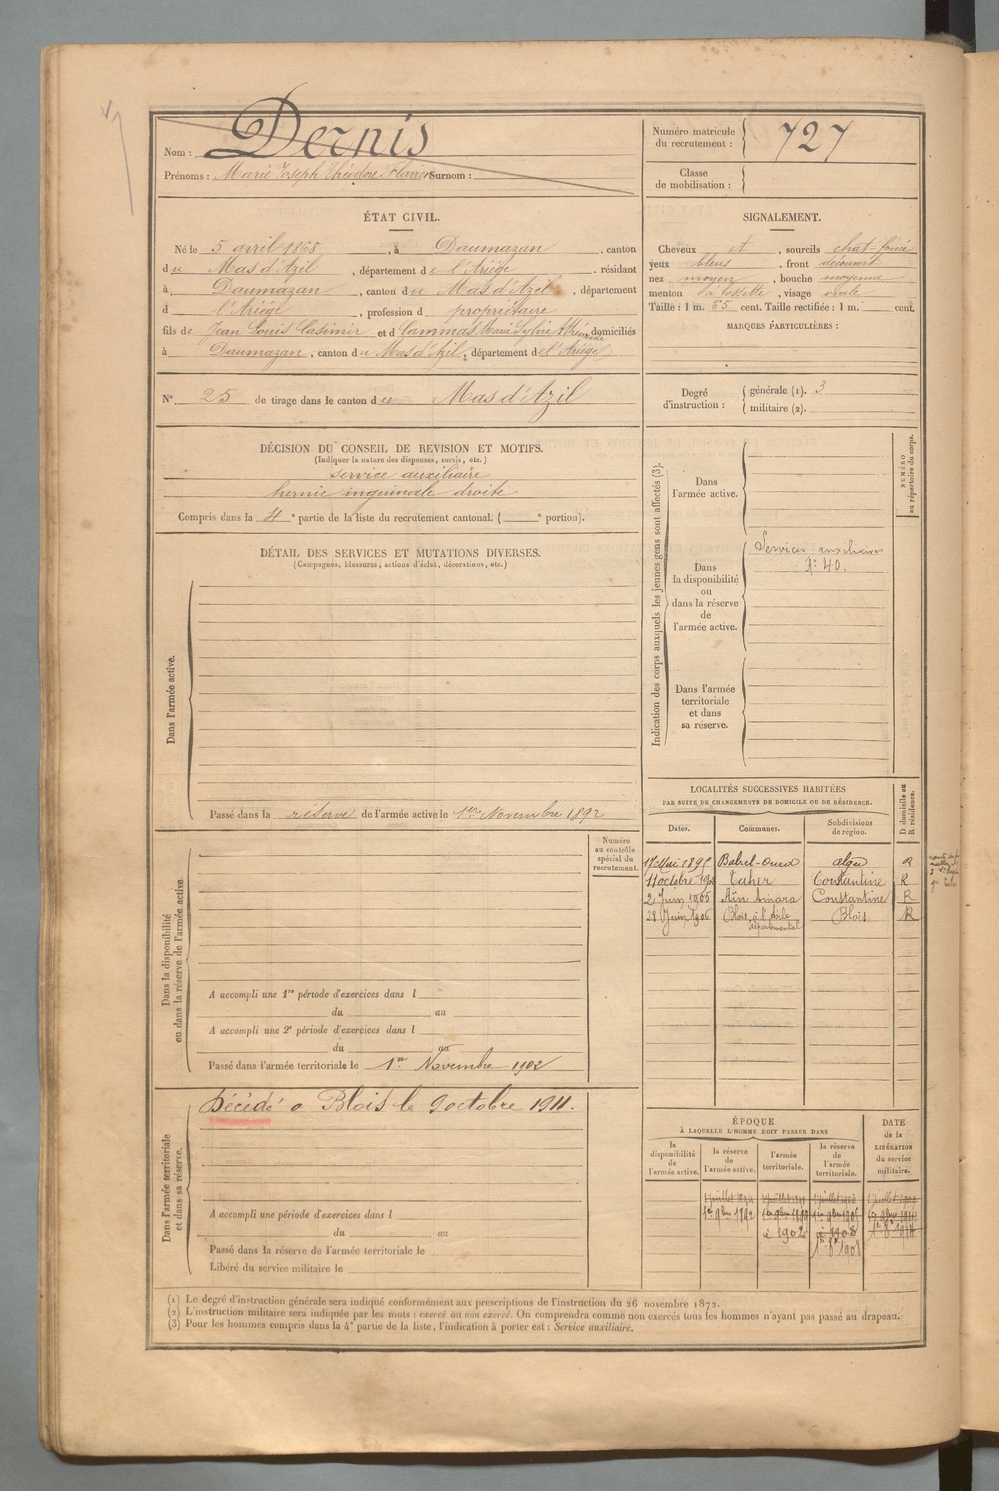 Nom : Dernis
Prénoms : Marie Joseph Théodore Surnom :
Numéro matricule du recrutement : 727
Classe de mobilisation :
ÉTAT CIVIL.
Né le 5 avril 1868, à Daumazan, canton
du Mas d'Azil, département de l'Ariège, résidant
à Daumazan, canton du Mas d'Azil, département
d l'Ariége, profession d propriétaire
fils de Jean Louis Casimir et d Cammas Marie Sylvie domiciliés
à Daumazan, canton du Mas d'Azil, département de l'Ariège
N° 25 de tirage dans le canton du Mas d'Azil
SIGNALEMENT.
Cheveux et, sourcils chat-foncé
yeux bleus, front découvert
nez moyen, bouche moyenne
menton à fossette, visage ovale
Taille : 1 m. 65 cent. Taille rectifiée : 1 m. cent.
MARQUES PARTICULIÈRES :
Degré d'instruction : générale (1). 3
militaire (2).
DÉCISION DU CONSEIL DE REVISION ET MOTIFS.
(Indiquer la nature des dispenses, sursis, etc.)
service auxiliaire
hernie inguinale droite
Compris dans la 4e partie de la liste du recrutement cantonal. ( e portion).
DÉTAIL DES SERVICES ET MUTATIONS DIVERSES.
(Campagnes, blessures, actions d'éclat, décorations, etc.)
Dans l'armée active.
Passé dans la réserve de l'armée active le 1er Novembre 1892
Dans la disponibilité
ou dans la réserve de l'armée active
Numéro
au contrôle
spécial du
recrutement.
A accompli une 1re période d'exercices dans l
du au
A accompli une 2e période d'exercices dans l
du au
Passé dans l'armée territoriale le 1er Novembre 1902
Dans l'armée territoriale
et dans sa réserve.
Décédé a Blois le 9 octobre 1911.
A accompli une période d'exercices dans l
du au
Passé dans la réserve de l'armée territoriale le
Libéré du service militaire le
Indication des corps auxquels les jeunes gens sont affectés (3).
NUMÉRO
au répertoire du corps.
Dans
l'armée active.
Dans
la disponibilité
ou
dans la réserve
de
l'armée active.
Services auxiliaires
N° 40.
Dans l'armée
territoriale
et dans
sa réserve.
LOCALITÉS SUCCESSIVES HABITÉES
PAR SUITE DE CHANGEMENTS DE DOMICILE OU DE RÉSIDENCE.
Dates. Communes. Subdivisions de région. D domicile ou R résidence.
17 Mai 1895 Bab-el-Oued alger R
11 octobre Taher Constantine R
2 Juin 1905 Aïn Amara Constantine R
28 Juin 1906 Blois, à l'Asile départemental Blois. R
ÉPOQUE
À LAQUELLE L'HOMME DOIT PASSER DANS
la disponibilité de l'armée active.
la réserve de l'armée active.
l'armée territoriale.
la réserve de l'armée territoriale.
DATE de la LIBÉRATION du service militaire.
1er 9bre 1892
1902
1908
(1) Le degré d'instruction générale sera indiqué conformément aux prescriptions de l'instruction du 26 novembre 1872.
(2) L'instruction militaire sera indiquée par les mots : exercé ou non exercé. On comprendra comme non exercés tous les hommes n'ayant pas passé au drapeau.
(3) Pour les hommes compris dans la 4e partie de la liste, l'indication à porter est : Service auxiliaire.